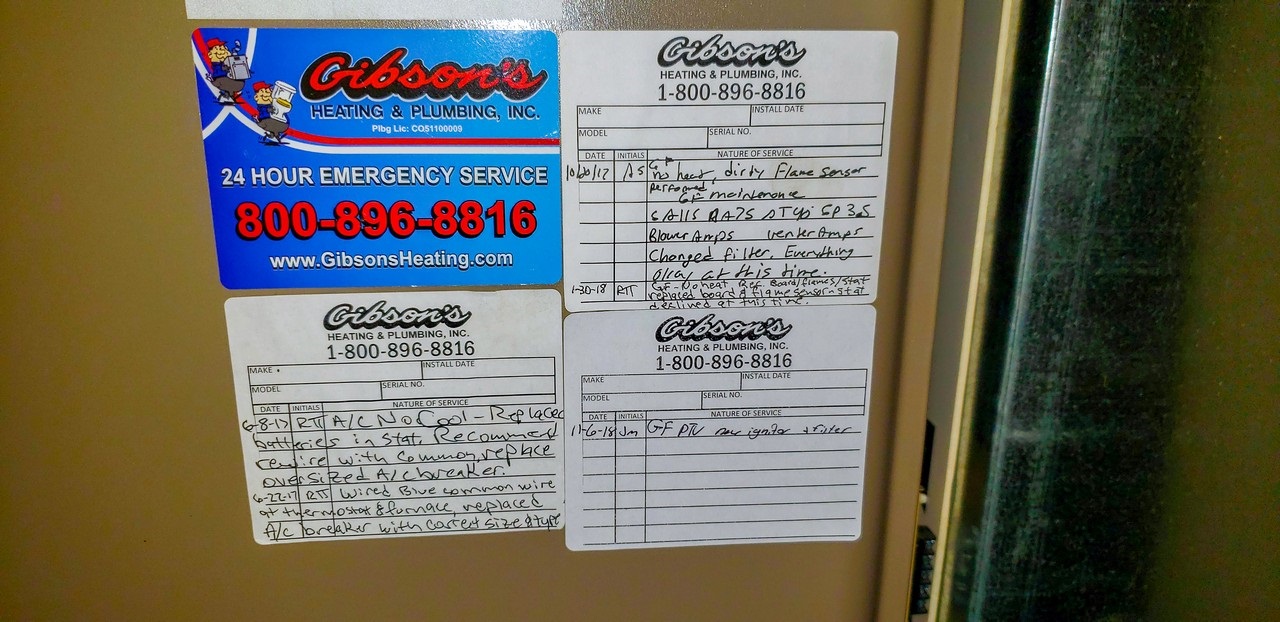 Gibson's
HEATING & PLUMBING, INC.
Plbg Lic: CO51100009
24 HOUR EMERGENCY SERVICE
800-896-8816
www.GibsonsHeating.com
Gibson's
HEATING & PLUMBING, INC.
1-800-896-8816
MAKE INSTALL DATE
MODEL SERIAL NO.
DATE INITIALS NATURE OF SERVICE
10/20/17 AS no heat, dirty Flame Sensor
performed GF maintenance
SP 3.5
Blower Amps venter Amps
Changed filter, Everything
okay at this time.
1-30-18 RTT GF-No heat Board/flames/stat
replaced board & flame sensor-stat
declined at this time.
Gibson's
HEATING & PLUMBING, INC.
1-800-896-8816
MAKE INSTALL DATE
MODEL SERIAL NO.
DATE INITIALS NATURE OF SERVICE
6-8-17 RTT A/C No Cool - Replaced
batteries in stat, Recommend
rewire with common, replace
oversized A/C breaker.
6-22-17 RTT Wired Blue common wire
at thermostat & furnace, replaced
A/C breaker with correct size & type
Gibson's
HEATING & PLUMBING, INC.
1-800-896-8816
MAKE INSTALL DATE
MODEL SERIAL NO.
DATE INITIALS NATURE OF SERVICE
11-6-18 Jm GF PTU new ignitor + filter